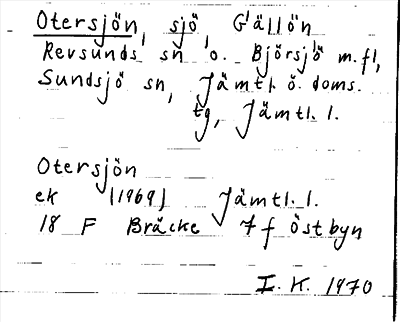 Otersjön, sjö, Gällön
Revsunds sn o. Björsjö m.fl,
Sundsjö sn, Jämtl. ö. doms.
tg, Jämtl. l.
Otersjön
ek (1969) Jämtl. l.
18 F Bräcke 7 f Östbyn
I. K. 1970